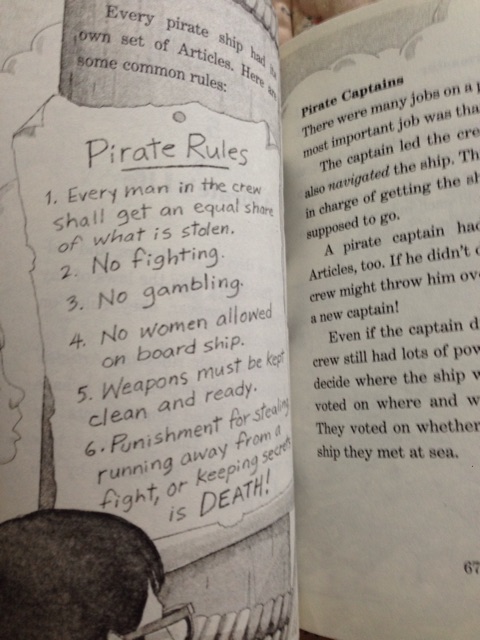 Every pirate ship had
own set of Articles. Here
some common rules:
Pirate Rules
1. Every man in the crew
shall get an equal share
of what is stolen.
2. No fighting.
3. No gambling.
4. No women allowed
on board ship.
5. Weapons must be kept
clean and ready.
6. Punishment for stealing
running away from a
fight, or keeping secrets
is DEATH!
Pirate Captains
There were many jobs on a
most important job was
The captain led the
also navigated the ship.
in charge of getting the
supposed to go.
A pirate captain
Articles, too. If he didn't
crew might throw him
a new captain!
Even if the captain
crew still had lots of
decide where the ship
voted on where and
They voted on
ship they met at sea.
67